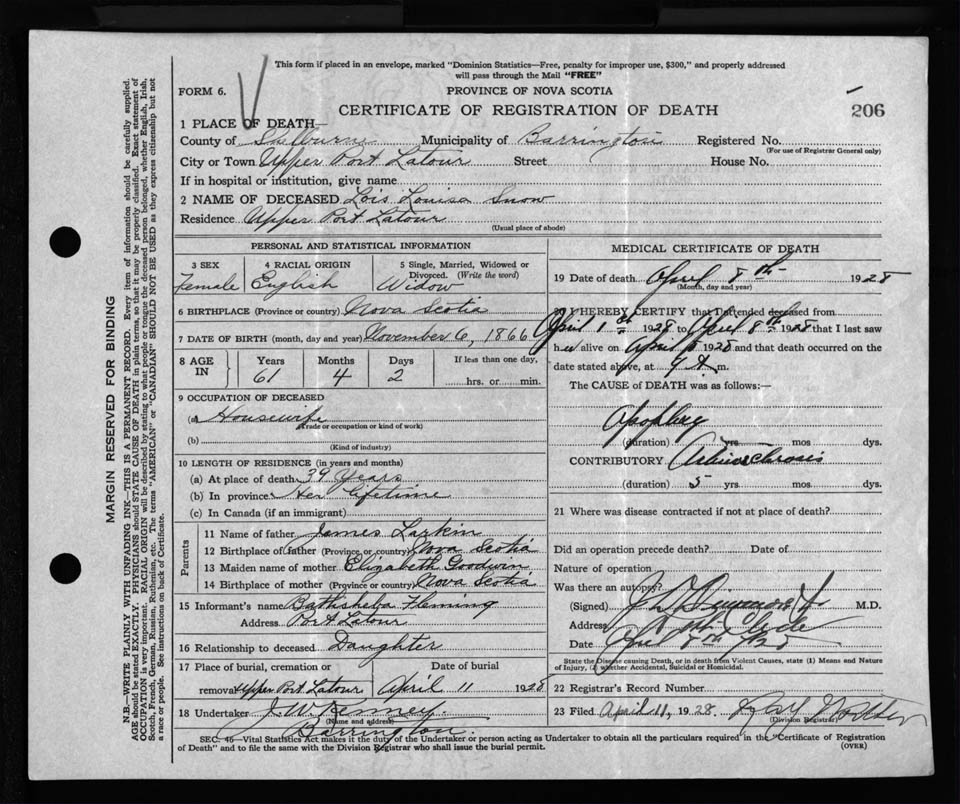 This form if placed in an envelope, marked "Dominion Statistics—Free, penalty for improper use, $300," and properly addressed
will pass through the Mail "FREE"
FORM 6.
PROVINCE OF NOVA SCOTIA
CERTIFICATE OF REGISTRATION OF DEATH
206
1 PLACE OF DEATH—
County of Shelburne Municipality of Barrington Registered No.
(For use of Registrar General only)
City or Town Upper Port Latour Street House No.
If in hospital or institution, give name
2 NAME OF DECEASED Lois Louisa Snow
Residence Upper Port Latour
(Usual place of abode)
PERSONAL AND STATISTICAL INFORMATION
3 SEX 4 RACIAL ORIGIN 5 Single, Married, Widowed or
Divorced. (Write the word)
Female English Widow
6 BIRTHPLACE (Province or country) Nova Scotia
7 DATE OF BIRTH (month, day and year) November 6, 1866
8 AGE IN Years Months Days If less than one day,
61 4 2 hrs. or min.
9 OCCUPATION OF DECEASED
(a) Housewife
(Trade or occupation or kind of work)
(b)
(Kind of industry)
10 LENGTH OF RESIDENCE (in years and months)
(a) At place of death 39 Years
(b) In province Her lifetime
(c) In Canada (if an immigrant)
Parents
11 Name of father James Larkin
12 Birthplace of father (Province or country) Nova Scotia
13 Maiden name of mother Elizabeth Goodwin
14 Birthplace of mother (Province or country) Nova Scotia
15 Informant's name Bathsheba Fleming
Address Port Latour
16 Relationship to deceased Daughter
17 Place of burial, cremation or Date of burial
removal Upper Port Latour April 11 1928
18 Undertaker J W Kenney
(Name and address)
Barrington
MEDICAL CERTIFICATE OF DEATH
19 Date of death April 8th 1928
(Month, day and year)
20 I HEREBY CERTIFY that I attended deceased from
April 1st 1928 to April 8th 1928 that I last saw
her alive on April 1928 and that death occurred on
date stated above, at 7 A. m.
The CAUSE of DEATH was as follows:—
Apoplexy
(duration) yrs mos dys.
CONTRIBUTORY Arteriosclerosis
(duration) 5 yrs mos. dys.
21 Where was disease contracted if not at place of death?
Did an operation precede death? Date of
Nature of operation
Was there an autopsy?
(Signed) M.D.
Address
Date
State the Disease causing Death, or in death from Violent Causes, state (1) Means and Nature
of Injury, (2) whether Accidental, Suicidal or Homicidal.
22 Registrar's Record Number
23 Filed April 11, 1928
(Division Registrar)
SEC. 46—Vital Statistics Act makes it the duty of the Undertaker or person acting as Undertaker to obtain all the particulars required in the "Certificate of Registration
of Death" and to file the same with the Division Registrar who shall issue the burial permit. (OVER)
MARGIN RESERVED FOR BINDING
N.B.—WRITE PLAINLY WITH UNFADING INK—THIS IS A PERMANENT RECORD. Every item of information should be carefully supplied.
AGE should be stated EXACTLY. PHYSICIANS should STATE CAUSE OF DEATH in plain terms, so that it may be properly classified. Exact statement of
OCCUPATION is very important. RACIAL ORIGIN will be described by stating to what people or tongue the deceased person belonged, whether English, Irish,
Scotch, French, German, Russian, Ruthenian, etc. The terms "AMERICAN" or "CANADIAN" SHOULD NOT BE USED as they express citizenship but not
a race or people. See instructions on back of Certificate.